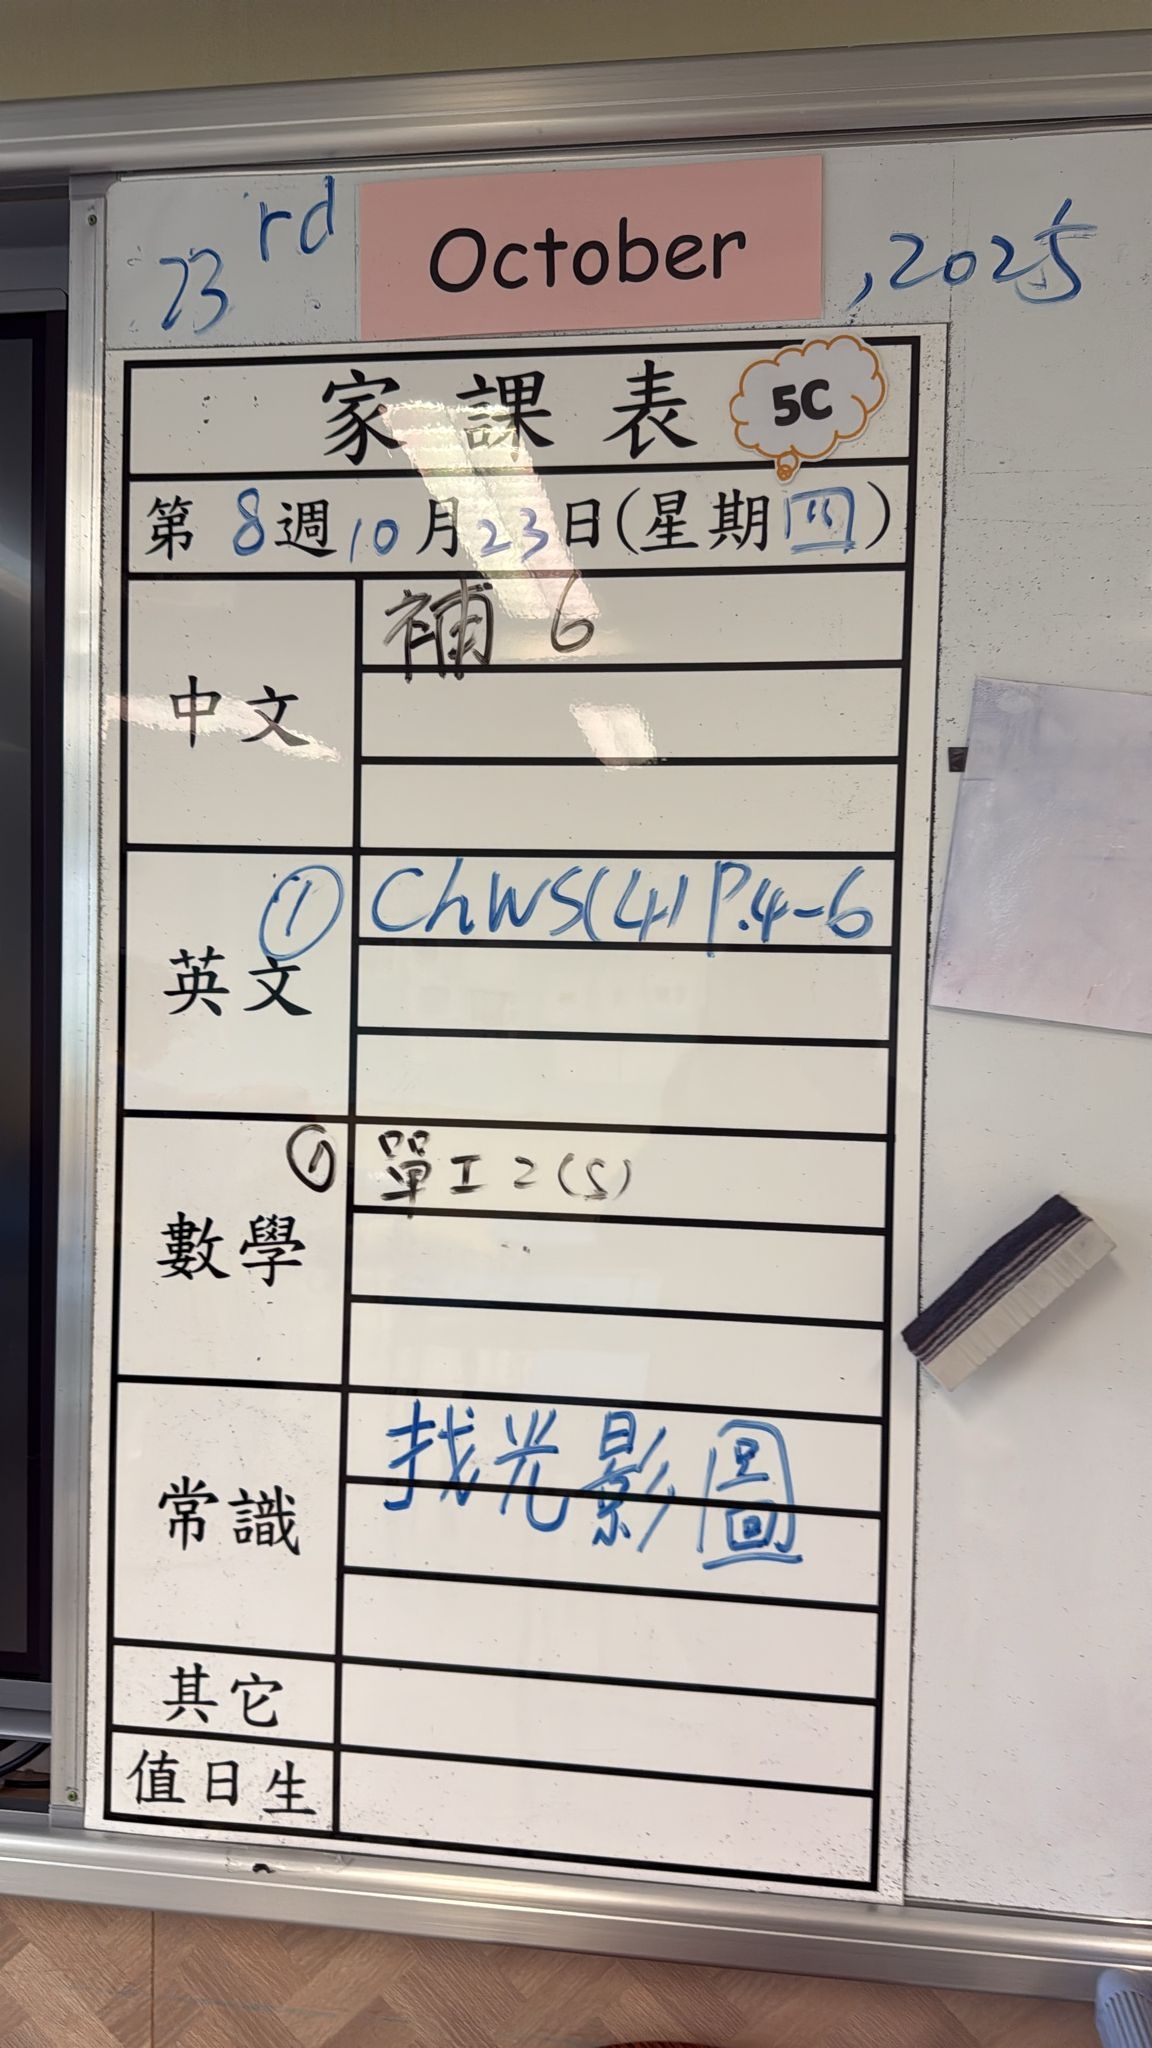 23rd October, 2025
家課表 5C
第8週10月23日(星期四)
中文
補 6
英文
① ChWS(4) P.4-6
數學
① 單工2(5)
常識
找光影圖
其它
值日生